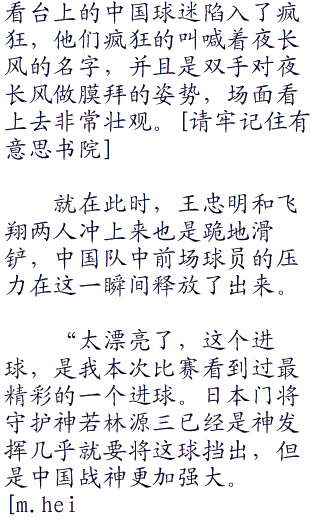 看台上的中国球迷陷入了疯
狂，他们疯狂的叫喊着夜长
风的名字，并且是双手对夜
长风做膜拜的姿势，场面看
上去非常壮观。[请牢记住有
意思书院]
就在此时，王忠明和飞
翔两人冲上来也是跪地滑
铲，中国队中前场球员的压
力在这一瞬间释放了出来。
“太漂亮了，这个进
球，是我本次比赛看到过最
精彩的一个进球。日本门将
守护神若林源三已经是神发
挥几乎就要将这球挡出，但
是中国战神更加强大。
[m.hei